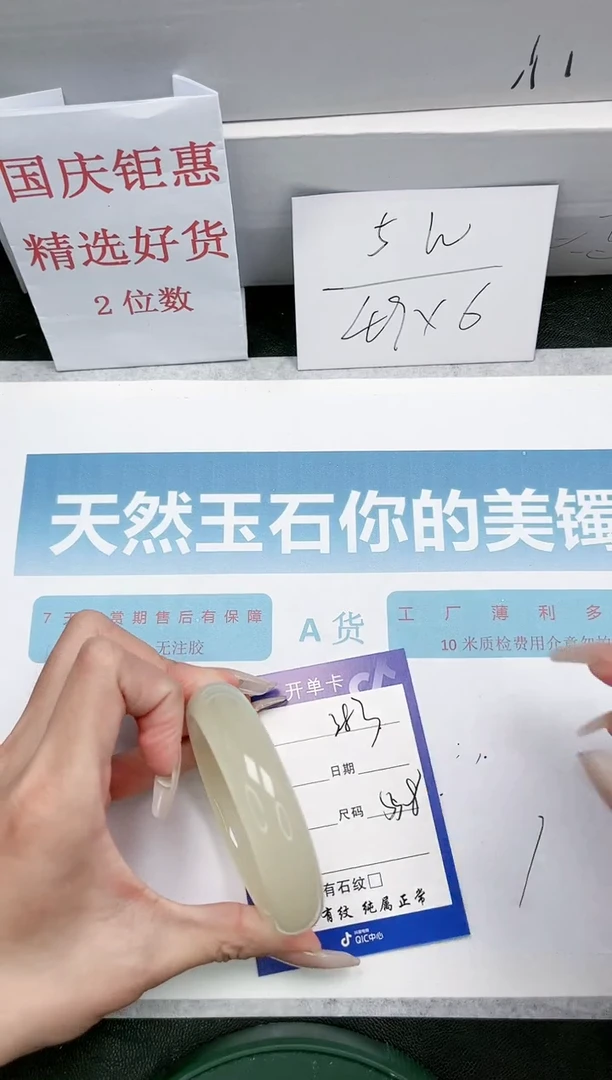 国庆钜惠
精选好货
2位数
5W
49×6
天然玉石你的美镯
7天
常期售后有保障
无注胶
A货
工厂薄利多
10米质检费用介意勿拍
开单卡
日期
尺码
有石纹□
有纹 纯属正常
QIC中心